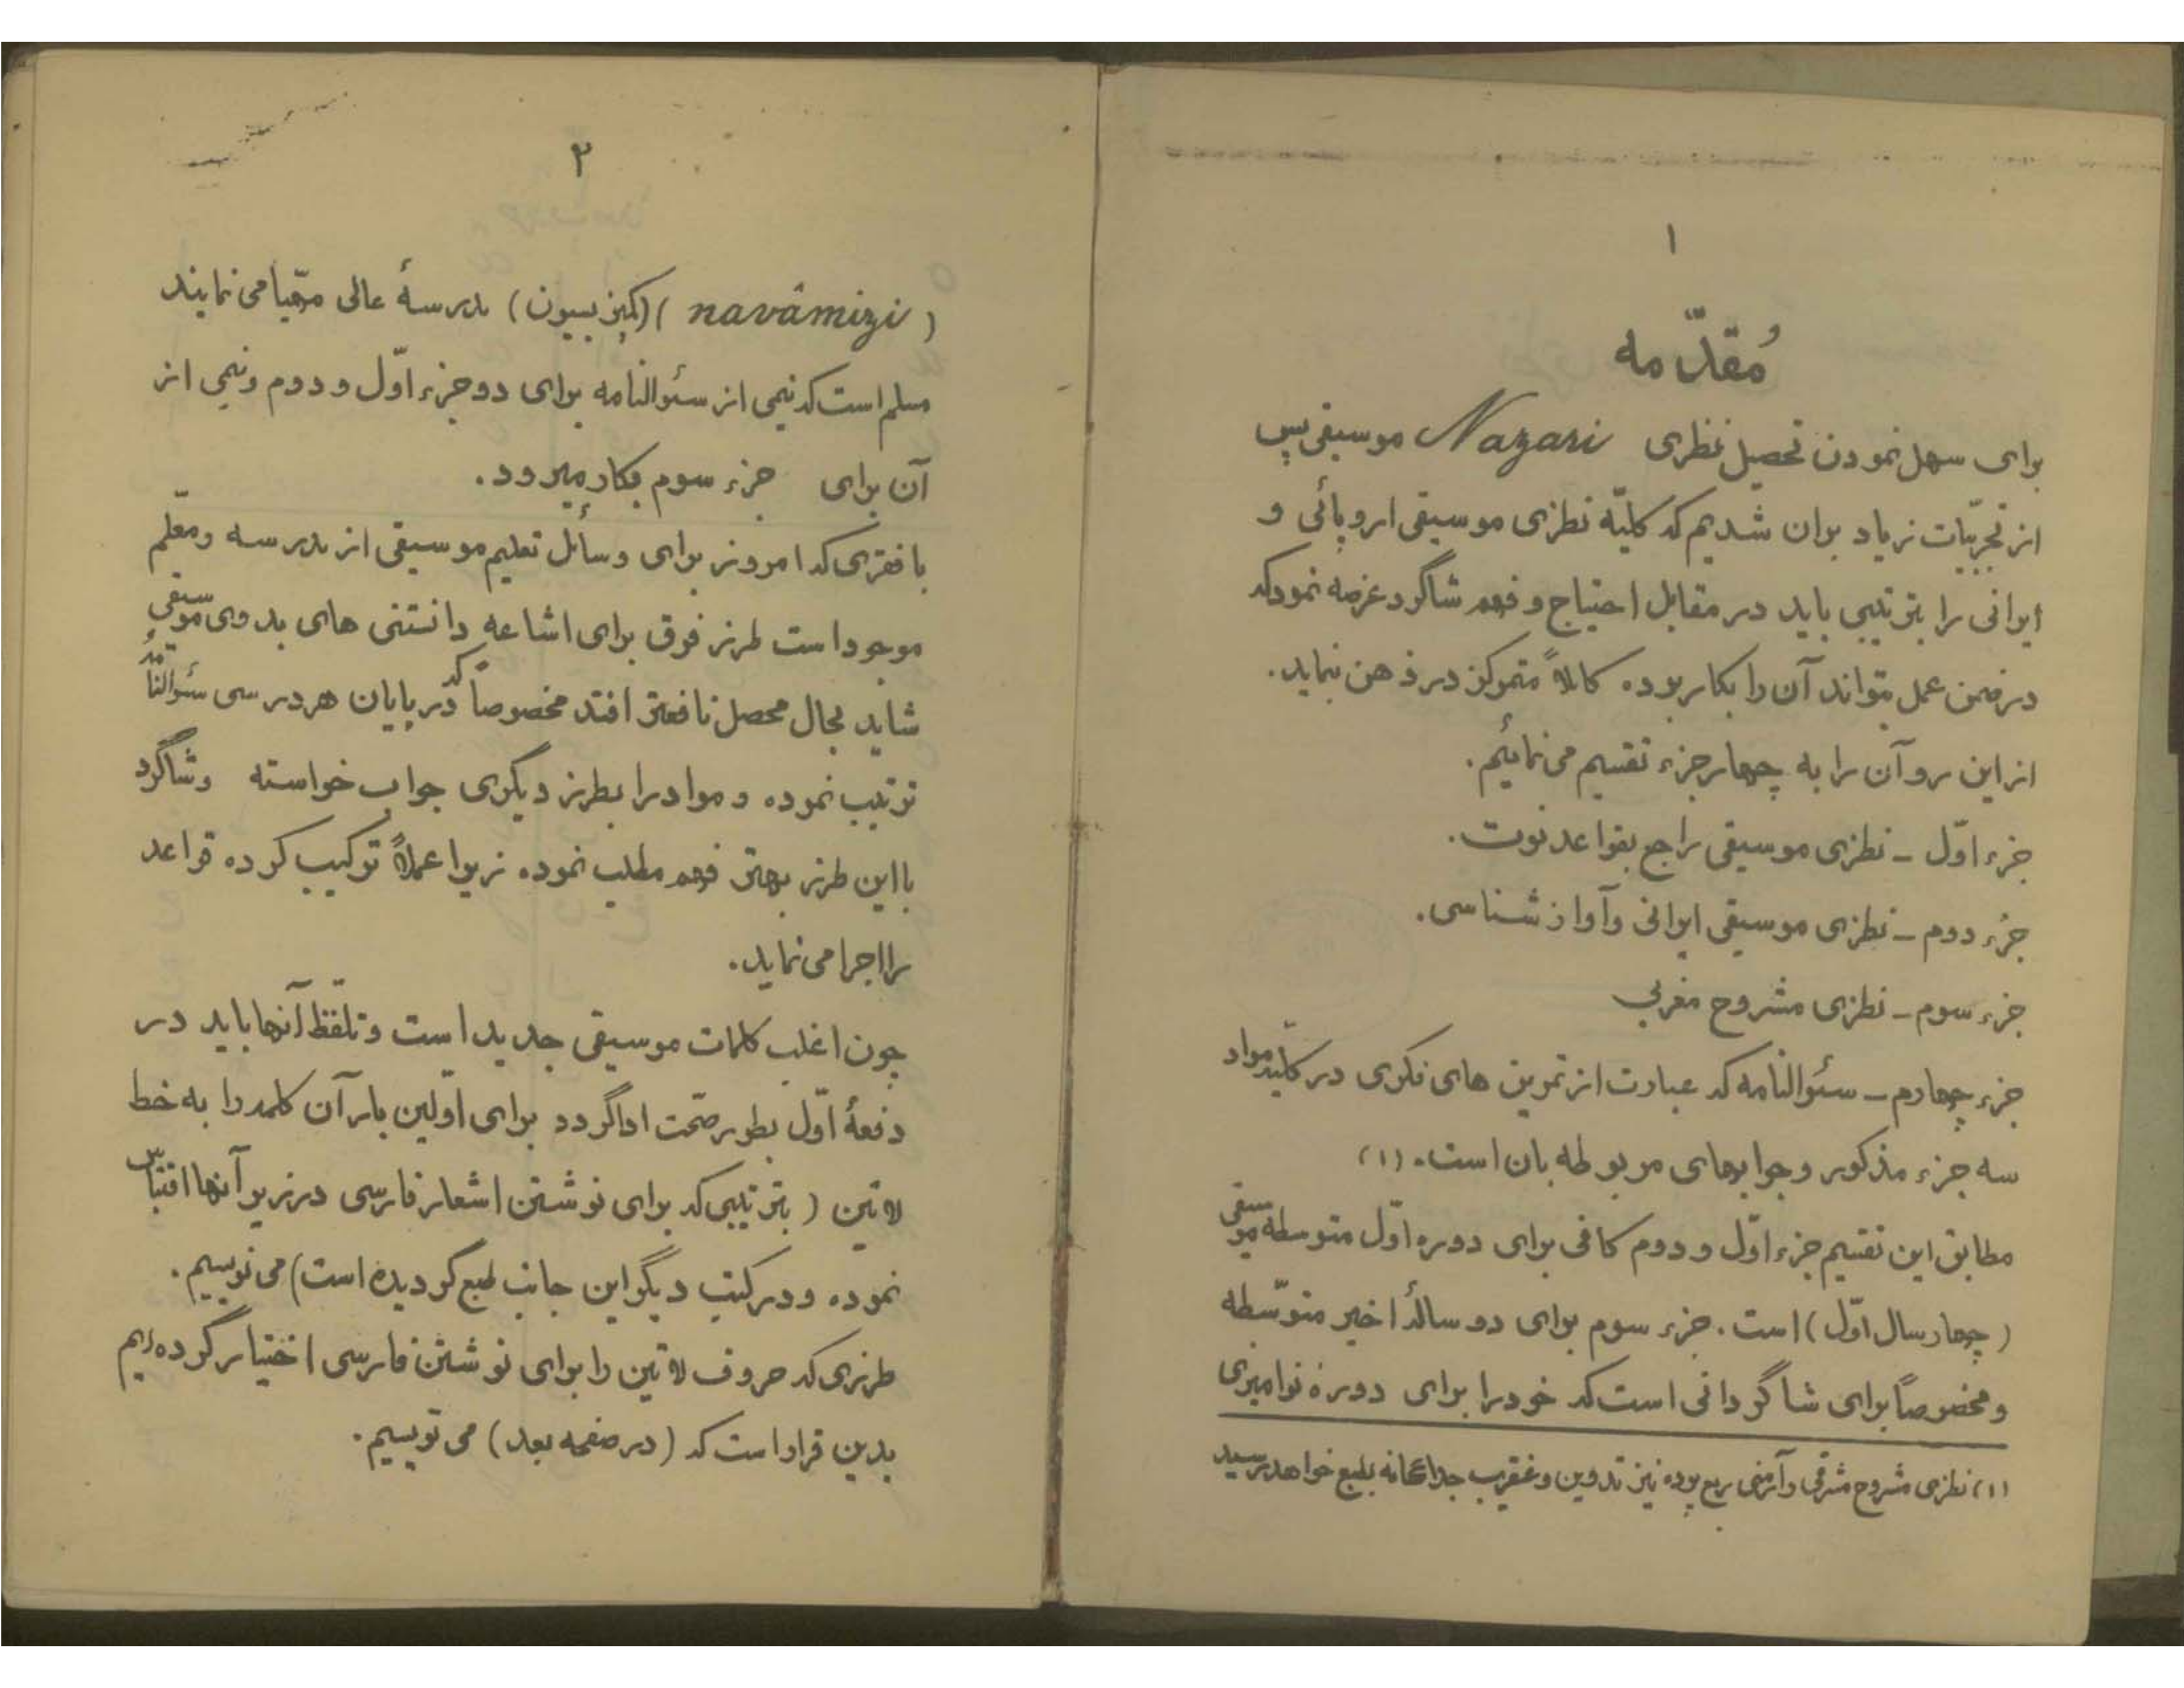 ۱
مُقدّمه
برای سهل نمودن تحصیل نظری Nazari موسیقی پس
از تجربیّات زیاد بران شدیم که کلیّه نظری موسیقی اروپائی و
ایرانی را بترتیبی باید در مقابل احتیاج و فهم شاگرد عرضه نمود که
در ضمن عمل بتواند آن را بکار برده کاملاً متمرکز در ذهن نماید.
از این رو آن را به چهار جزء تقسیم می نمائیم.
جزء اوّل ـ نظری موسیقی راجع بقواعد نوت.
جزء دوم ـ نظری موسیقی ایرانی و آواز شناسی.
جزء سوم ـ نظری مشروح مغربی
جزء چهارم ـ سئوالنامه که عبارت از تمرین های فکری در کلیّه مواد
سه جزء مذکور و جوابهای مربوطه بان است. (۱)
مطابق این تقسیم جزء اوّل و دوم کافی برای دوره اوّل متوسطه موسیقی
(چهار سال اوّل) است. جزء سوم برای دو سالهٔ اخیر متوسّطه
و مخصوصاً برای شاگردانی است که خود را برای دورهٔ نوامیزی
(۱) نظری مشروح مشرقی و آرمنی ربع پرده نیز تدوین و عنقریب جداگانه بطبع خواهد رسید
۲
(navâmizi) (کمپزیسیون) مدرسهٔ عالی مهّیا می نمایند
مسلم است که نیمی از سئوالنامه برای دو جزء اوّل و دوم و نیمی از
آن برای جزء سوم بکار میرود.
با فقری که امروز برای وسائل تعلیم موسیقی از مدرسه و معلّم
موجود است طرز فوق برای اشاعه دانستنی های بدوی موسیقی
شاید بحال محصل نافعتر افتد مخصوصاً که در پایان هر درسی سئوالنامهٔ
ترتیب نموده و مواد را بطرز دیگری جواب خواسته و شاگرد
با این طرز بهتر فهم مطلب نموده زیرا عملاً ترکیب کرده قواعد
را اجرا می نماید.
چون اغلب کلمات موسیقی جدید است و تلفّظ آنها باید در
دفعهٔ اوّل بطور صحّت ادا گردد برای اوّلین بار آن کلمه را به خط
لاتین (بترتیبی که برای نوشتن اشعار فارسی در زیر آنها اقتباس
نموده و در کتب دیگر این جانب طبع گردیده است) می نویسیم.
طرزی که حروف لاتین را برای نوشتن فارسی اختیار کرده ایم
بدین قرار است که (در صفحه بعد) می نویسیم.